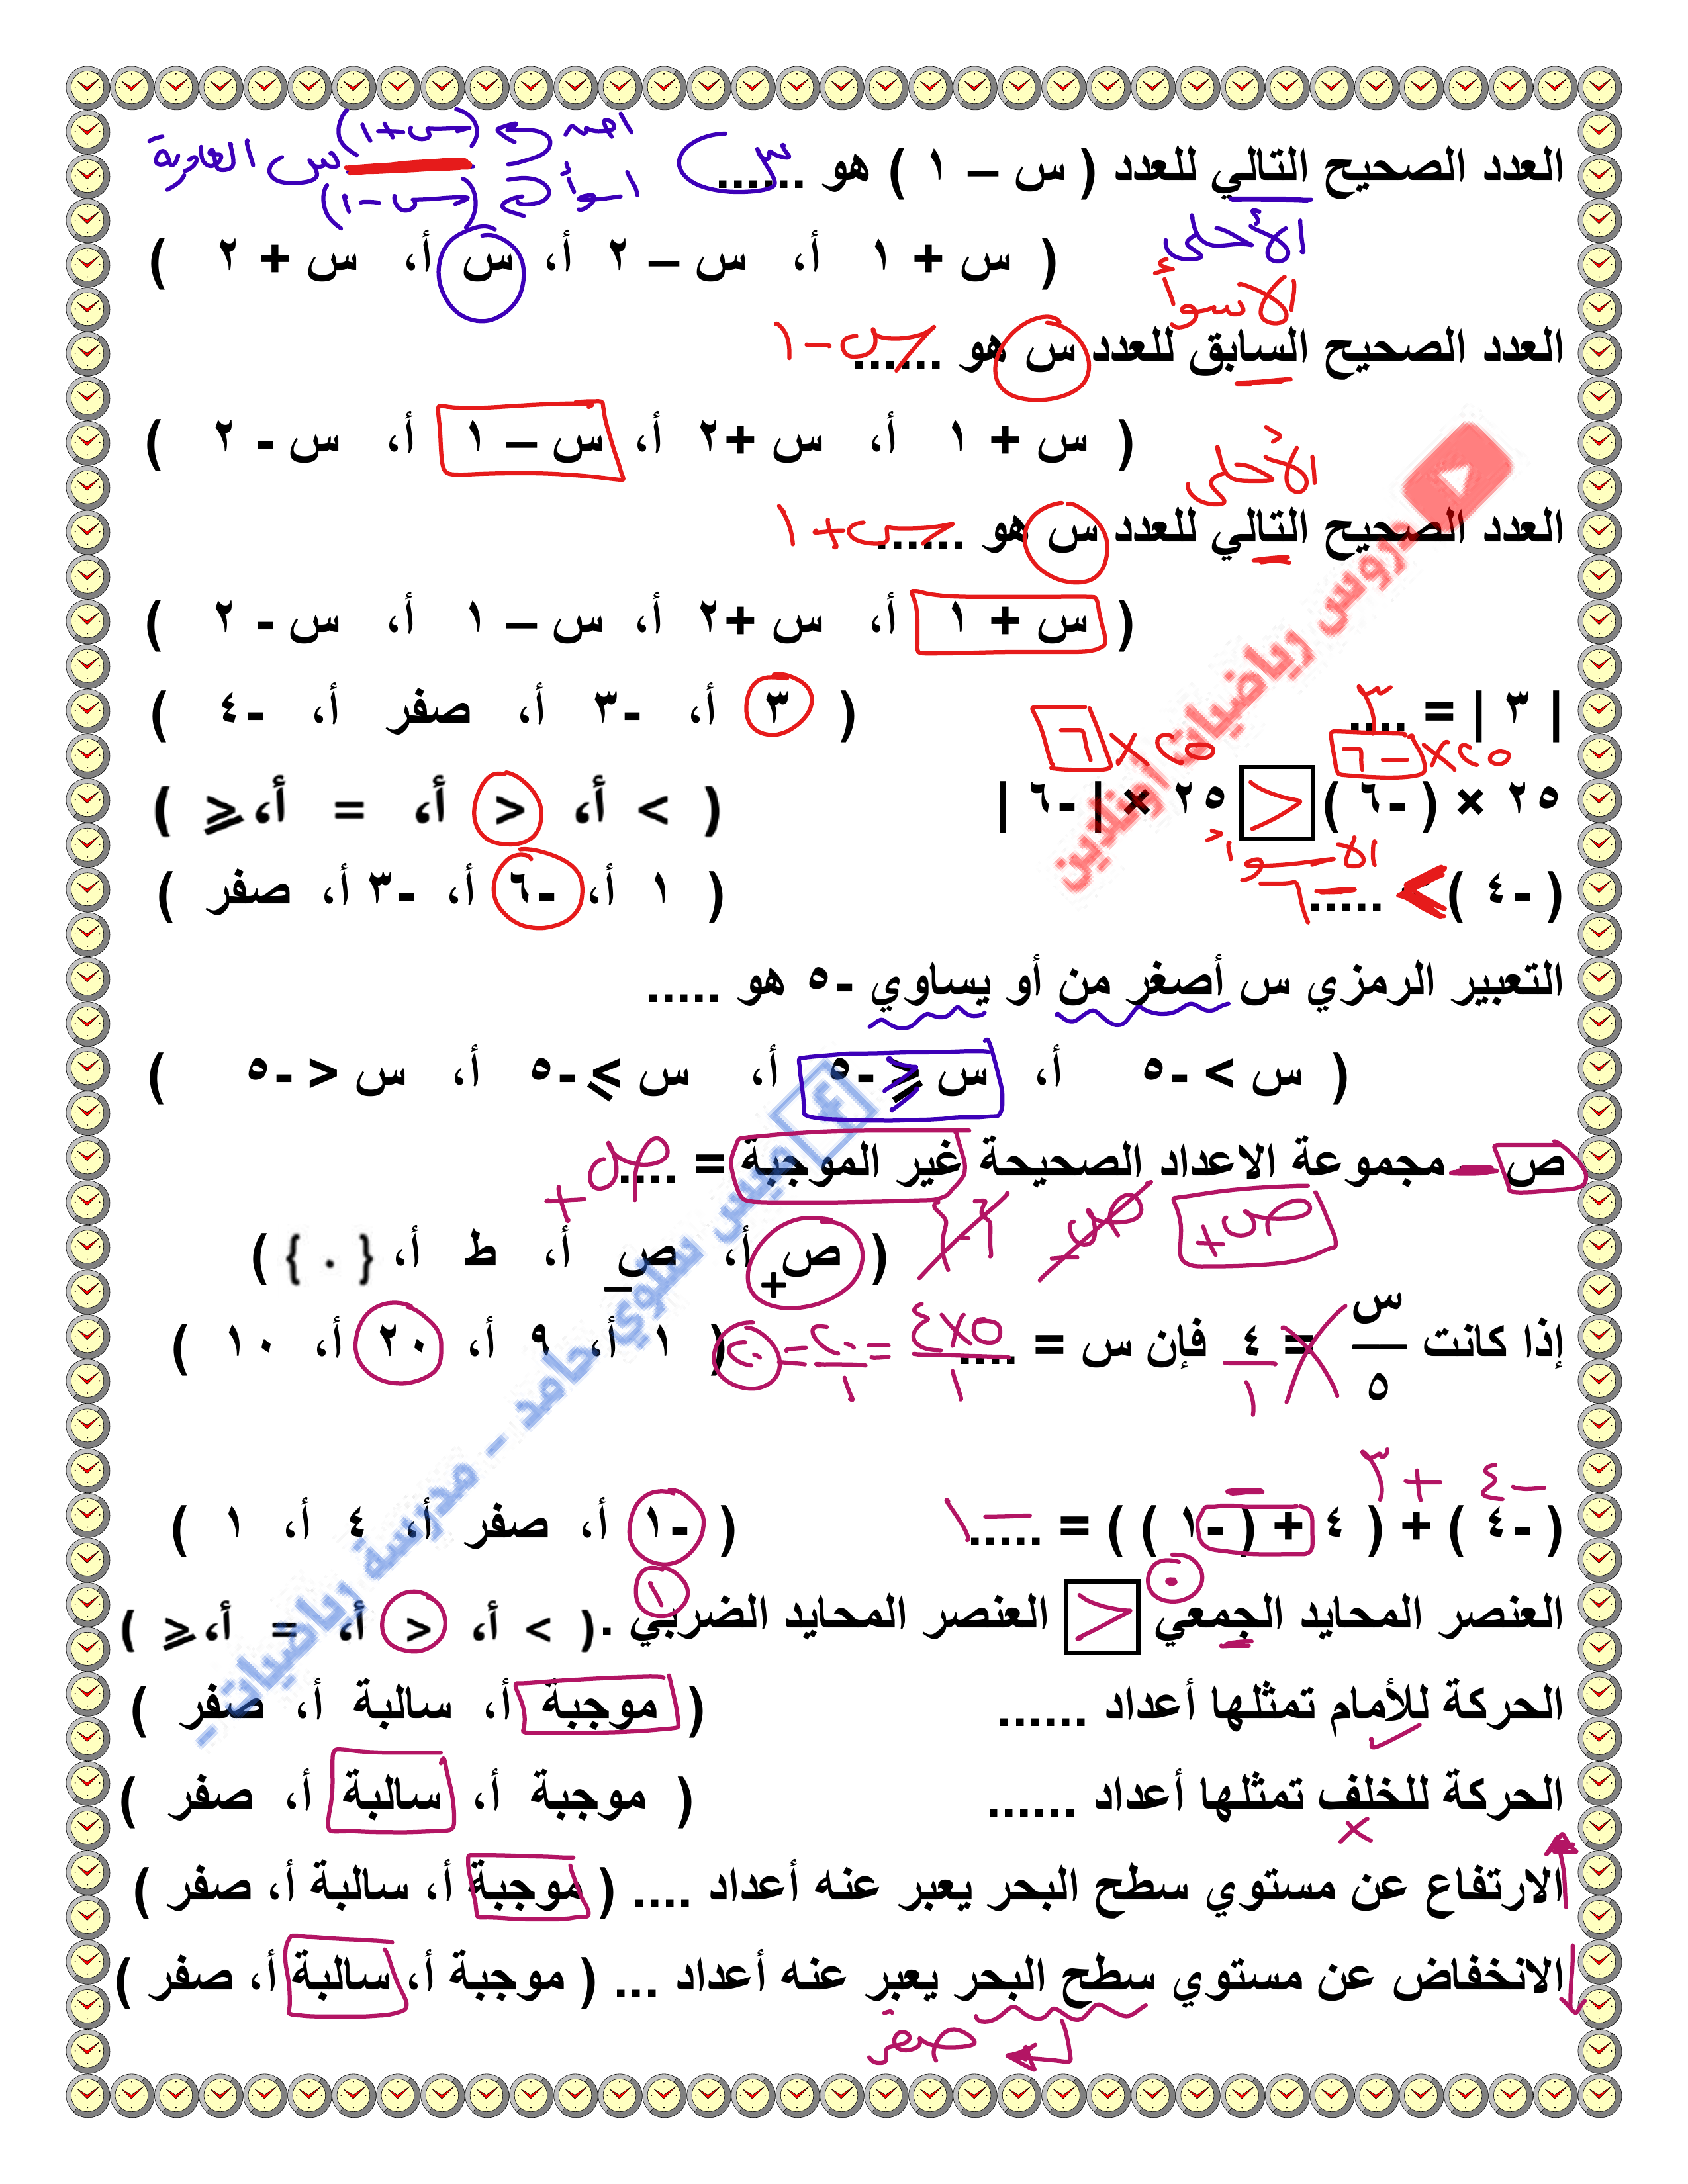 العدد الصحيح التالي للعدد ( س – ١ ) هو ...... س
س العادية
(س+١)
(س-١)
أسوأ
( س + ١ أ، س – ٢ أ، س أ، س + ٢ )
الأحلى
الاسوأ
العدد الصحيح السابق للعدد س هو ...... س-١
( س + ١ أ، س +٢ أ، س – ١ أ، س - ٢ )
الأحلى
العدد الصحيح التالي للعدد س هو ...... س+١
( س + ١ أ، س +٢ أ، س – ١ أ، س - ٢ )
| ٣ | = .... ٣ ( ٣ أ، -٣ أ، صفر أ، -٤ )
-٦×٢٥ ٦×٢٥
٢٥ × ( -٦ ) < ٢٥ × | -٦ | ( > أ، < أ، = أ، ≤ )
الاسوأ
( -٤ ) > ..... -٦ ( ١ أ، -٦ أ، -٣ أ، صفر )
التعبير الرمزي س أصغر من أو يساوي -٥ هو .....
( س > -٥ أ، س ≥ -٥ أ، س ≤ -٥ أ، س < -٥ )
ص – مجموعة الاعداد الصحيحة غير الموجبة = .... ص+
ص+ ص- {٠}
( ص+ أ، ص_ أ، ط أ، { ٠ } )
إذا كانت س/٥ = ٤ فإن س = .... ( ١ أ، ٩ أ، ٢٠ أ، ١٠ )
٤×٥/١ = ٢٠/١ = ٢٠
-٤ + ٣
( -٤ ) + ( ٤ + ( -١ ) ) = ..... -١ ( -١ أ، صفر أ، ٤ أ، ١ )
٠ ١
العنصر المحايد الجمعي < العنصر المحايد الضربي . ( > أ، < أ، = أ، ≤ )
الحركة للأمام تمثلها أعداد ...... ( موجبة أ، سالبة أ، صفر )
الحركة للخلف تمثلها أعداد ...... ( موجبة أ، سالبة أ، صفر )
الارتفاع عن مستوي سطح البحر يعبر عنه أعداد .... ( موجبة أ، سالبة أ، صفر )
الانخفاض عن مستوي سطح البحر يعبر عنه أعداد ... ( موجبة أ، سالبة أ، صفر )
صفر
دروس رياضيات أونلاين
ميس سلوي حامد - مدرسة رياضيات -